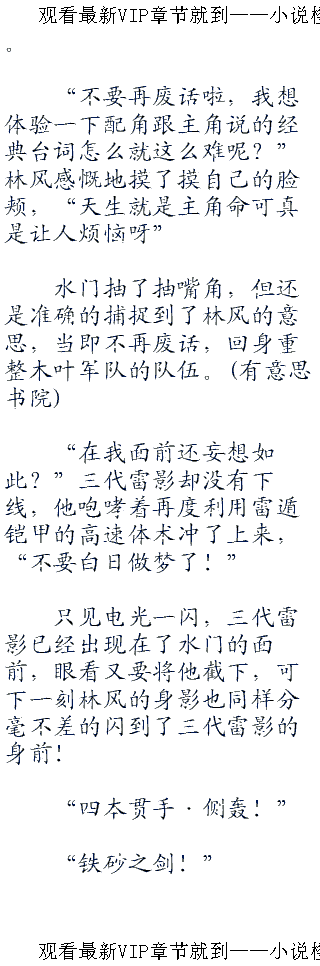 观看最新VIP章节就到——小说楼
。
“不要再废话啦，我想
体验一下配角跟主角说的经
典台词怎么就这么难呢？”
林风感慨地摸了摸自己的脸
颊，“天生就是主角命可真
是让人烦恼呀”
水门抽了抽嘴角，但还
是准确的捕捉到了林风的意
思，当即不再废话，回身重
整木叶军队的队伍。(有意思
书院)
“在我面前还妄想如
此？”三代雷影却没有下
线，他咆哮着再度利用雷遁
铠甲的高速体术冲了上来，
“不要白日做梦了！”
只见电光一闪，三代雷
影已经出现在了水门的面
前，眼看又要将他截下，可
下一刻林风的身影也同样分
毫不差的闪到了三代雷影的
身前！
“四本贯手·侧轰！”
“铁砂之剑！”
观看最新VIP章节就到——小说楼